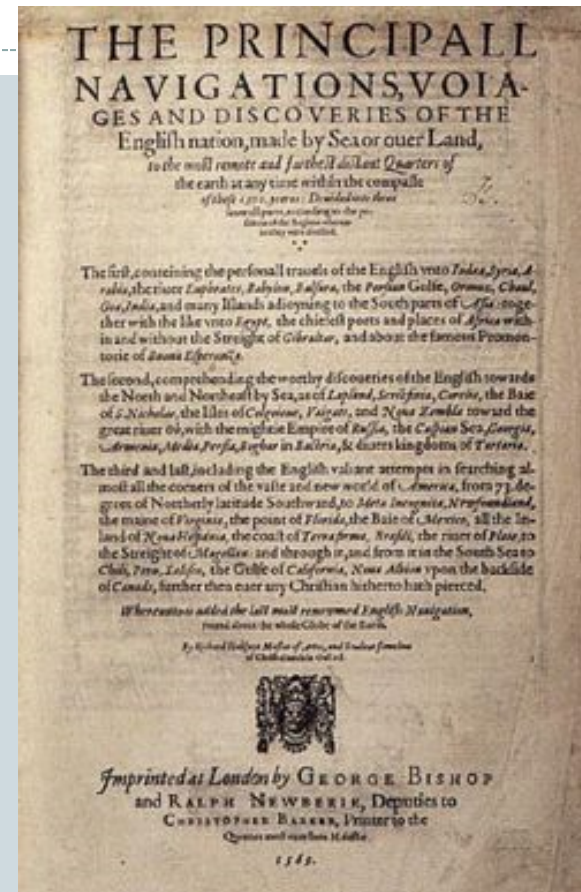 THE PRINCIPALL
NAVIGATIONS, VOIA-
GES AND DISCOVERIES OF THE
Engliſh nation, made by Sea or ouer Land,
to the moſt remote and fartheſt diſtant Quarters of
the earth at any time within the compaſſe
of theſe 1500. yeeres: Deuided into three
ſeuerall parts, according to the po-
The firſt, conteining the perſonall trauels of the Engliſh vnto Iudæa, Syria, A-
rabia, the riuer Euphrates, Babylon, Balſara, the Perſian Gulfe, Ormuz, Chaul,
Goa, India, and many Iſlands adioyning to the South parts of Aſia: toge-
ther with the like vnto Egypt, the chiefeſt ports and places of Africa with-
in and without the Streight of Gibraltar, and about the famous Promon-
torie of Buona Eſperanza.
The ſecond, comprehending the worthy diſcoueries of the Engliſh towards
the North and Northeaſt by Sea, as of Lapland, Scrikfinia, Corelia, the Baie
of S. Nicholas, the Iſles of Colgoieue, Vaigats, and Noua Zembla toward the
great riuer Ob, with the mightie Empire of Ruſſia, the Caſpian Sea, Georgia,
Armenia, Media, Perſia, Boghar in Bactria, & diuers kingdoms of Tartaria.
The third and laſt, including the Engliſh valiant attempts in ſearching al-
moſt all the corners of the vaſte and new world of America, from 73. de-
grees of Northerly latitude Southward, to Meta Incognita, Newfoundland,
the maine of Virginia, the point of Florida, the Baie of Mexico, all the In-
land of Noua Hiſpania, the coaſt of Terra firma, Braſill, the riuer of Plate, to
the Streight of Magellan: and through it, and from it in the South Sea to
Chili, Peru, Xaliſco, the Gulfe of California, Noua Albion vpon the backſide
of Canada, further then euer any Chriſtian hitherto hath pierced.
Whereunto is added the laſt moſt renowmed Engliſh Nauigation,
round about the whole Globe of the Earth.
By Richard Hakluyt Maſter of Artes, and Student ſometime
of Chriſt-church in Oxford.
Imprinted at London by GEORGE BISHOP
and RALPH NEWBERIE, Deputies to
CHRISTOPHER BARKER, Printer to the
Queenes moſt excellent Maieſtie.
1589.